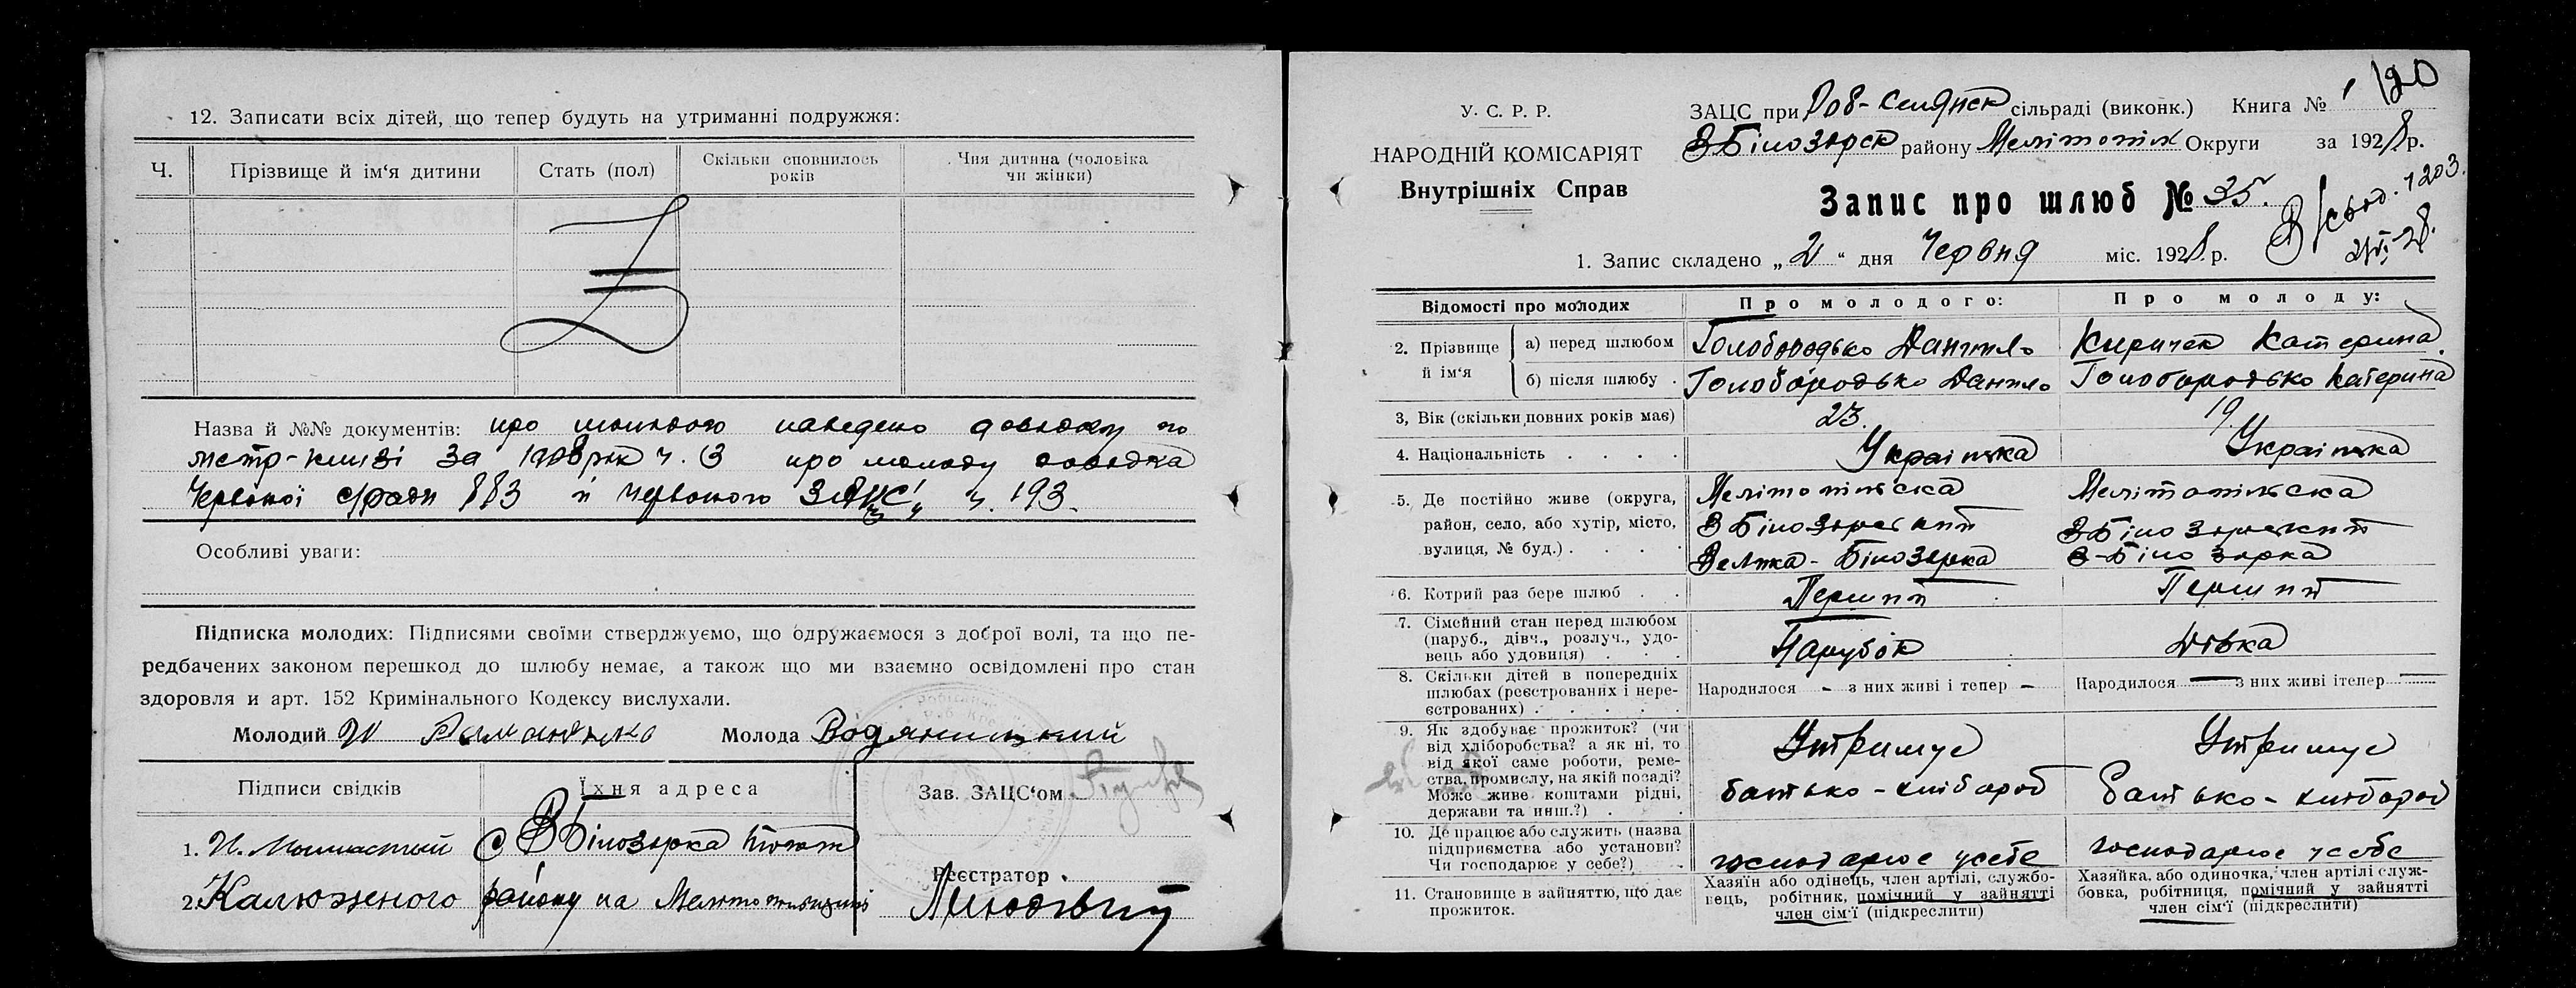 12. Записати всіх дітей, що тепер будуть на утриманні подружжя:
Ч.
Прізвище й ім‘я дитини
Стать (пол)
Скільки сповнилось років
Чия дитина (чоловіка чи жінки)
Назва й №№ документів: про молодого наведено довідку по
метр-книзі за рік ч. 3 про молоду довідка
Червоної с/ради 883 й червоного ЗАЦС ч. 193.
Особливі уваги:
Підписка молодих: Підписями своїми стверджуємо, що одружаємося з доброї волі, та що пе-
редбачених законом перешкод до шлюбу немає, а також що ми взаємно освідомлені про стан
здоровля и арт. 152 Кримінального Кодексу вислухали.
Молодий Молода
Підписи свідків
Їхня адреса
Зав. ЗАЦС‘ом
1. В Білозорка
2. Калюженого району на
Реєстратор
У. С. Р. Р.
НАРОДНІЙ КОМІСАРІЯТ
Внутрішніх Справ
120
ЗАЦС при Роб-Селянск сільраді (виконк.) Книга № 1
ВБілозорск району Мелітопіл Округи за 1928 р.
Запис про шлюб № 35.
1203.
1. Запис складено „2“ дня Червня міс. 1928 р.
Відомості про молодих
Про молодого:
Про молоду:
2. Прізвище й ім‘я
а) перед шлюбом
Голобородько Данило
Киричек Катерина
б) після шлюбу
Голобородько Данило
Голобородько Катерина
3, Вік (скільки повних років має)
23.
19.
4. Національність
Українка
Українка
5. Де постійно живе (округа,
район, село, або хутір, місто,
вулиця, № буд.)
Мелітопільска
ВБілозорский
Велика-Білозорка
Мелітопільска
ВБілозорский
В-Білозорка
6. Котрий раз бере шлюб
Перший
Перший
7. Сімейний стан перед шлюбом
(паруб., дівч., розлуч., удо-
вець або удовиця)
Парубок
Дівка
8. Скільки дітей в попередніх
шлюбах (реєстрованих і нере-
єстрованих)
Народилося – з них живі і тепер –
Народилося — з них живі ітепер —
9. Як здобуває прожиток? (чи
від хліборобства? а як ні, то
від якої саме роботи, реме-
ства, промислу, на якій посаді?
Може живе коштами рідні,
держави та инш.?)
Утримує
батько-хлібороб
Утримує
батько-хлібороб
10. Де працює або служить (назва
підприємства або установи?
Чи господарює у себе?)
господарює усебе
господарює усебе
11. Становище в зайняттю, що дає
прожиток.
Хазяїн або одінець, член артілі, службо-
вець, робітник, помічний у зайнятті
член сім‘ї (підкреслити)
Хазяйка, або одиночка, член артілі служ-
бовка, робітниця, помічний у зайнятті
член сім‘ї (підкреслити)